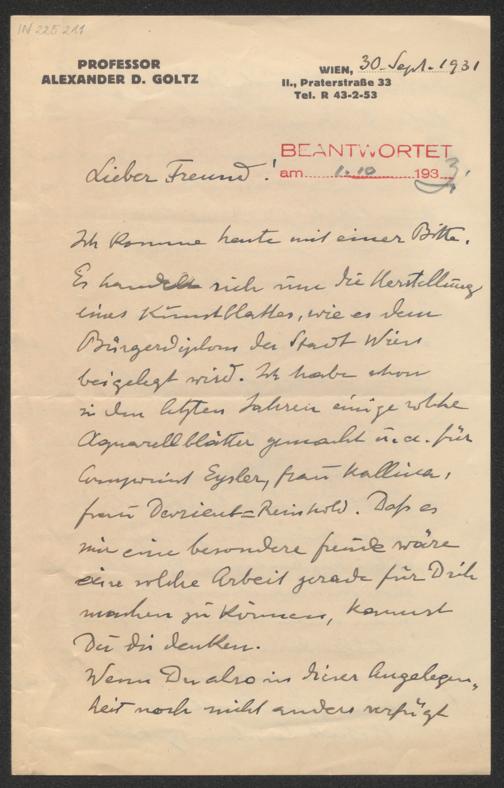 IN 225.211
PROFESSOR
ALEXANDER D. GOLTZ
WIEN, 30. Sept. 1931
II., Praterstraße 33
Tel. R 43-2-53
BEANTWORTET
am 1. 10 193
Lieber Freund!
Ich komme heute mit einer Bitte.
Es handelt sich um die Herstellung
eines Kunstblattes, wie es dem
Bürgerdiplom der Stadt Wien
beigelegt wird. Ich habe schon
in den letzten Jahren einige solche
Aquarellblätter gemacht u. a. für
Componist Eysler, Frau Kallina,
Frau Devrient=Reinhold. Daß es
mir eine besondere Freude wäre
eine solche Arbeit gerade für Dich
machen zu können, kannst
Du Dir denken.
Wenn Du also in dieser Angelegen„
heit noch nicht anders verfügt